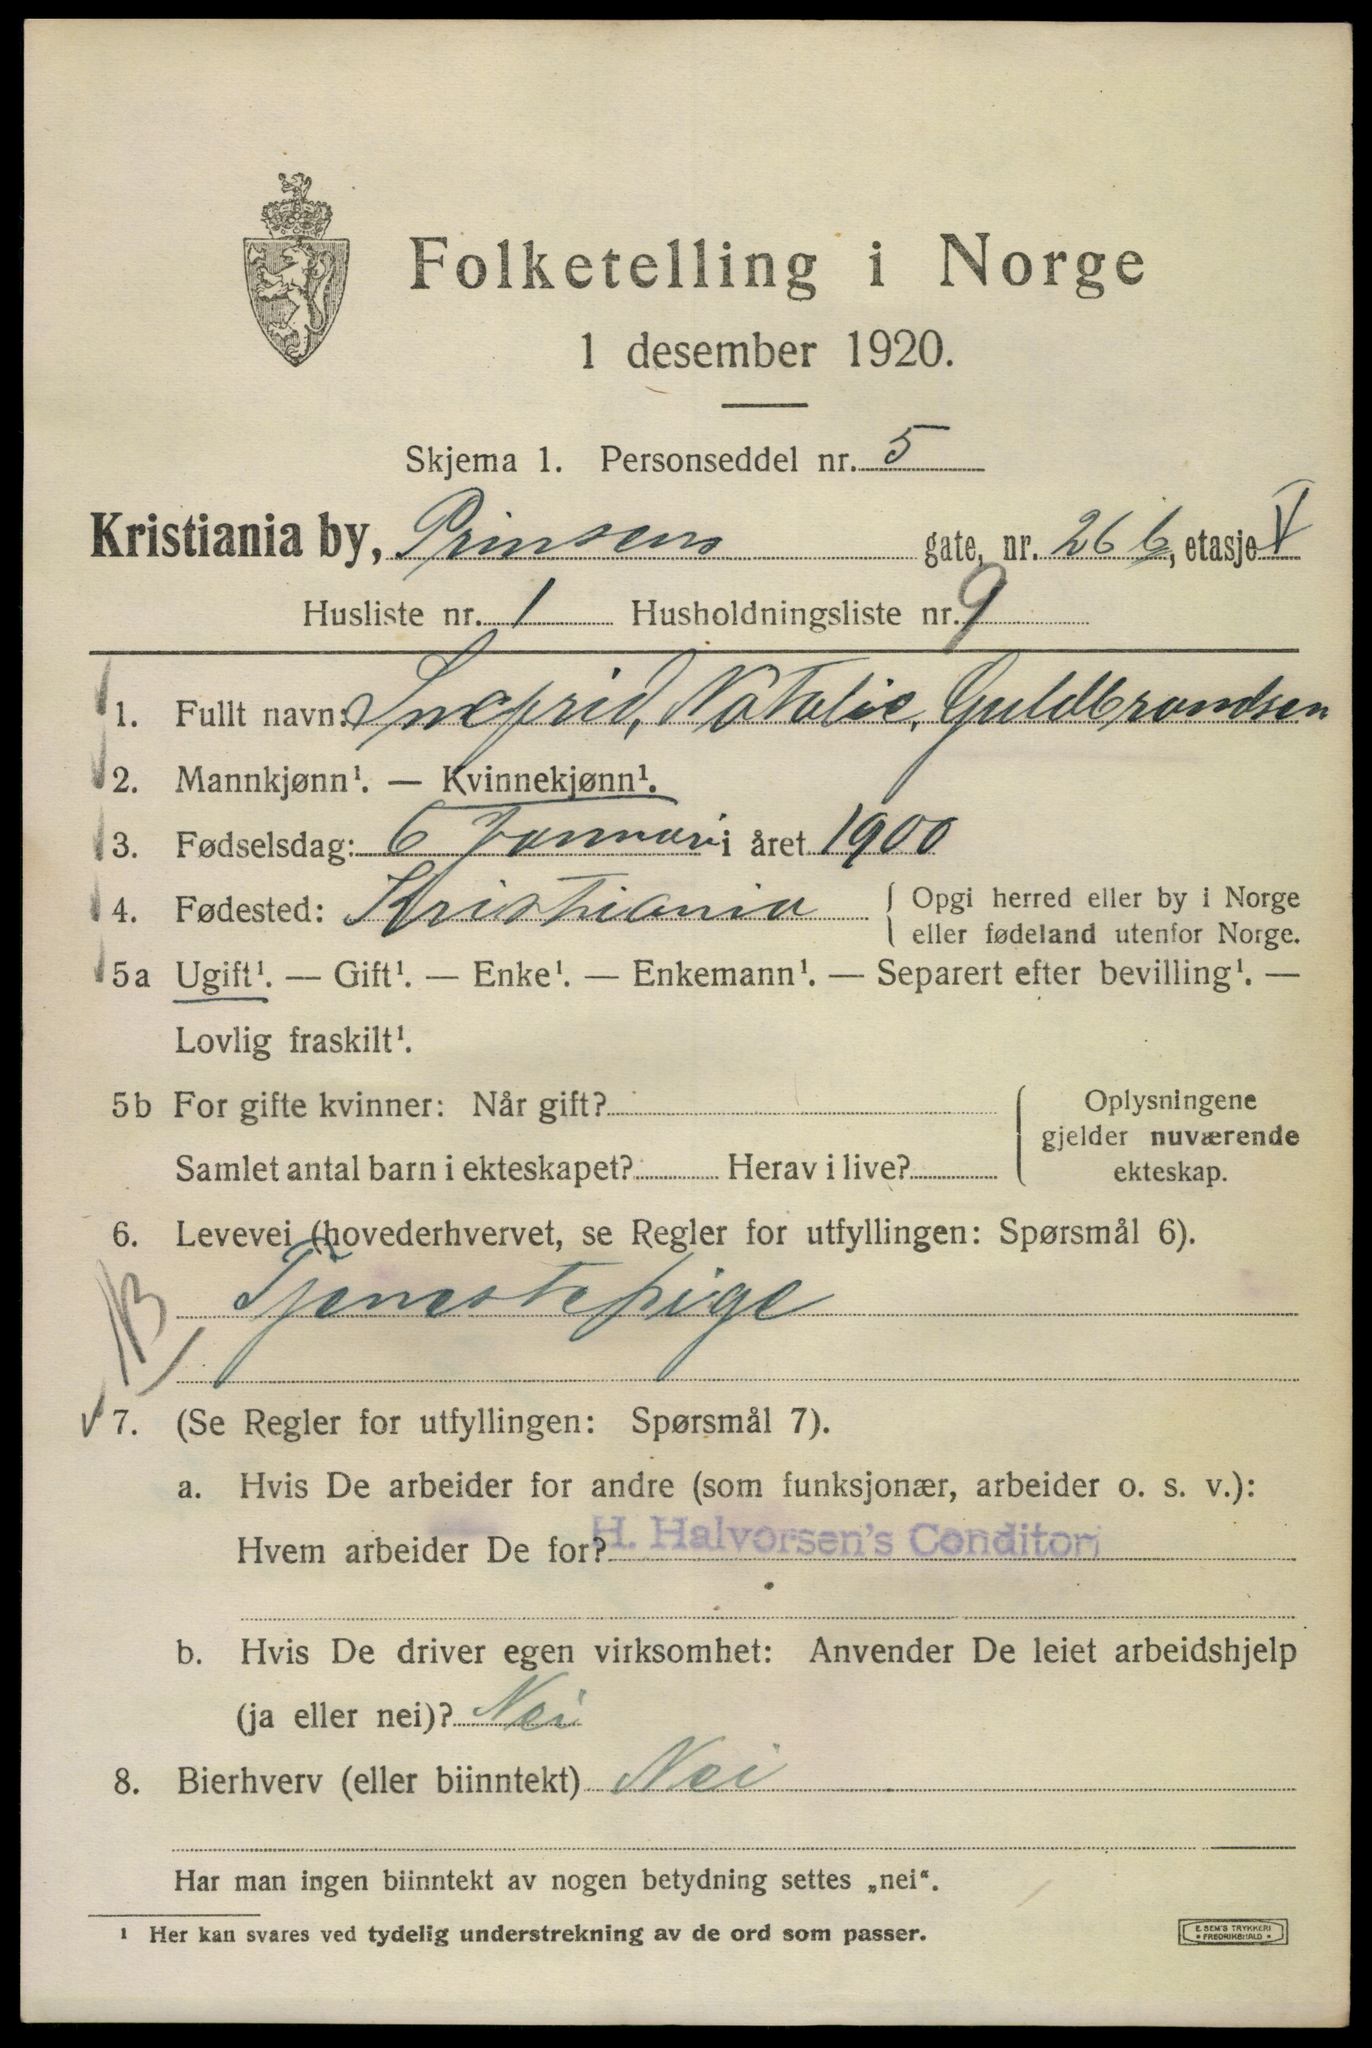 Folketelling i Norge
1 desember 1920.
Skjema 1. Personseddel nr. 5
Kristiania by, Prinsens gate, nr. 26 b, etasje V
Husliste nr. 1 Husholdningsliste nr. 9
1. Fullt navn: Ingrid, Natalie, Guldbrandsen
2. Mannkjønn¹. — Kvinnekjønn¹.
3. Fødselsdag: 6 Januar i året 1900
4. Fødested: Kristiania { Opgi herred eller by i Norge
eller fødeland utenfor Norge.
5a Ugift¹. — Gift¹. — Enke¹. — Enkemann¹. — Separert efter bevilling¹. —
Lovlig fraskilt¹.
5b For gifte kvinner: Når gift?
Samlet antal barn i ekteskapet? Herav i live?
Oplysningene
gjelder nuværende
ekteskap.
6. Levevei (hovederhvervet, se Regler for utfyllingen: Spørsmål 6).
B Tjenestepige
7. (Se Regler for utfyllingen: Spørsmål 7).
a. Hvis De arbeider for andre (som funksjonær, arbeider o. s. v.):
Hvem arbeider De for? H. Halvorsen's Conditori
b. Hvis De driver egen virksomhet: Anvender De leiet arbeidshjelp
(ja eller nei)? Nei
8. Bierhverv (eller biinntekt) Nei
Har man ingen biinntekt av nogen betydning settes „nei“.
¹ Her kan svares ved tydelig understrekning av de ord som passer.
E. SEM'S TRYKKERI
* FREDRIKSHALD *